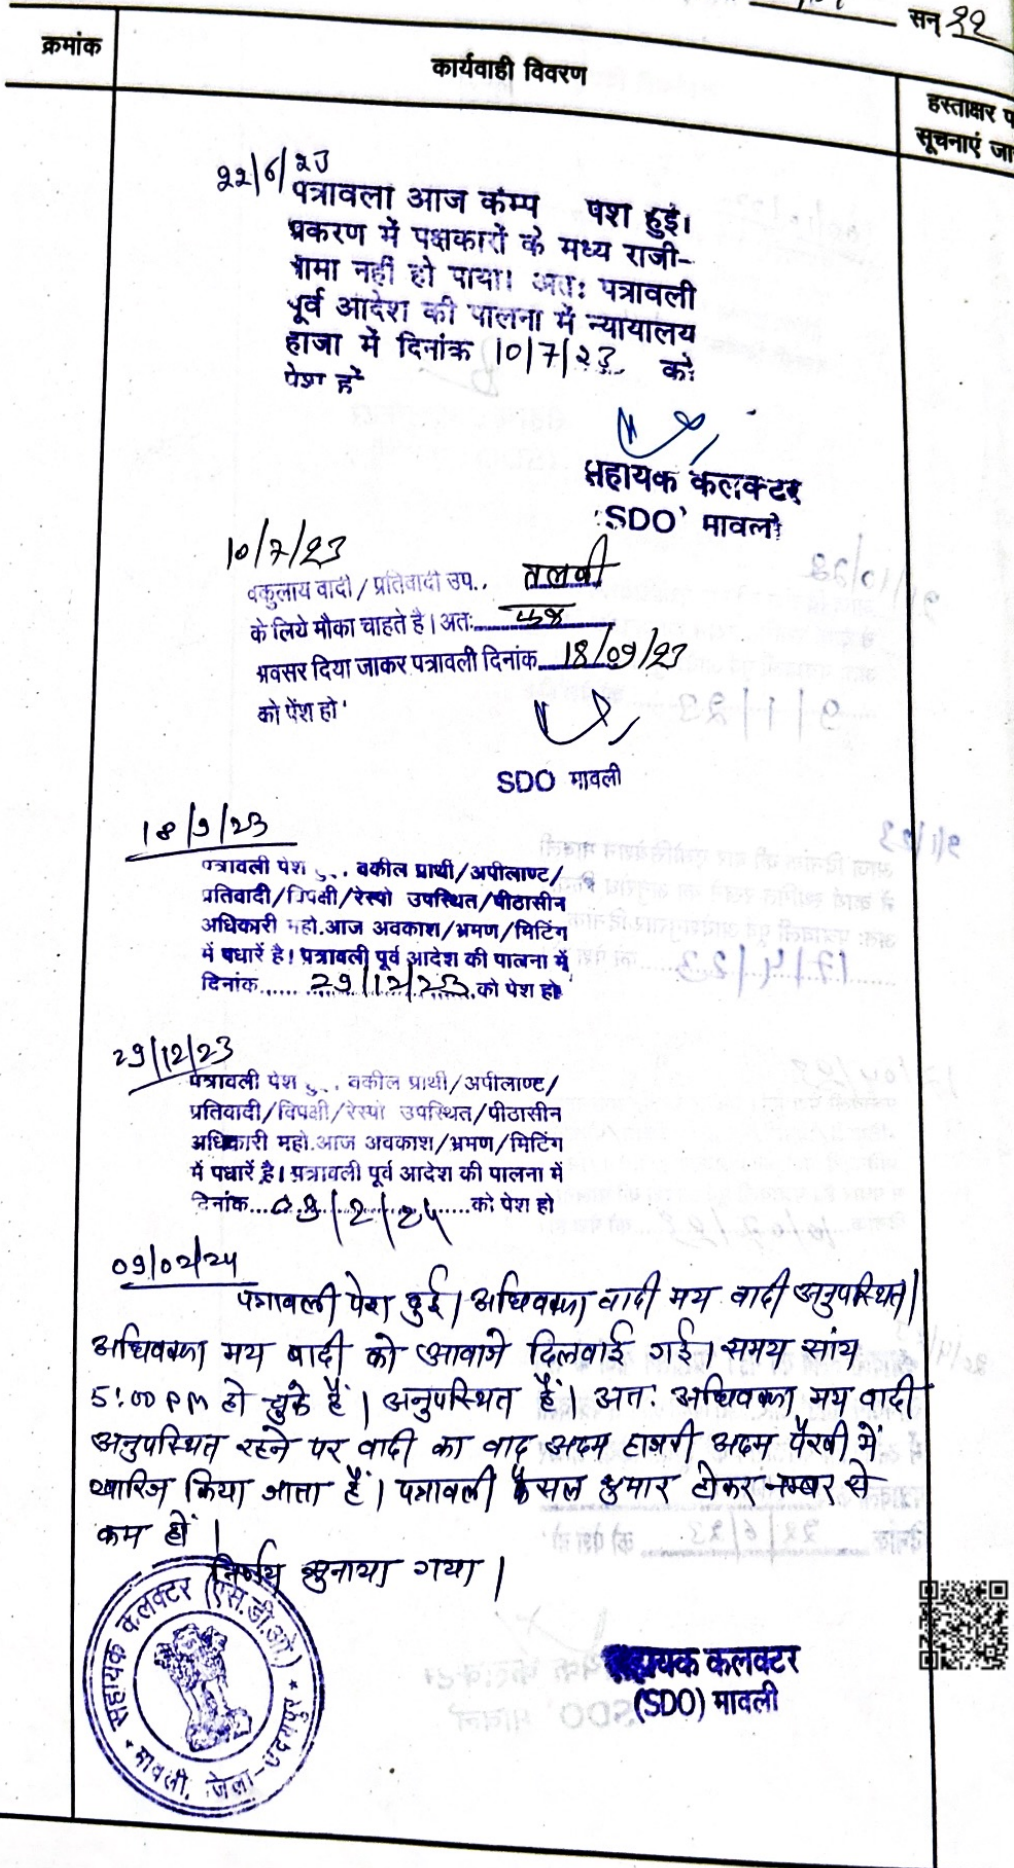 सन् 22
क्रमांक
कार्यवाही विवरण
हस्ताक्षर प
सूचनाएं जा
22/6/23
पत्रावला आज कम्प पश हुई।
प्रकरण में पक्षकारों के मध्य राजी-
नामा नहीं हो पाया। अतः पत्रावली
पूर्व आदेश की पालना में न्यायालय
हाजा में दिनांक 10/7/23 को
पेश हो
सहायक कलक्टर
'SDO' मावली
10/7/23
वकुलाय वादी/प्रतिवादी उप.. तलबी
के लिये मौका चाहते है। अतः
अवसर दिया जाकर पत्रावली दिनांक 18/09/23
को पेंश हो
SDO मावली
18/9/23
पत्रावली पेश हु.. वकील प्रार्थी/अपीलाण्ट/
प्रतिवादी/विपक्षी/रेस्पो उपस्थित/पीठासीन
अधिकारी महो.आज अवकाश/भ्रमण/मिटिंग
में पधारें है। पत्रावली पूर्व आदेश की पालना में
दिनांक...... 29/12/23 को पेश हो
29/12/23
पत्रावली पेश हु.. वकील प्रार्थी/अपीलाण्ट/
प्रतिवादी/विपक्षी/रेस्पो उपस्थित/पीठासीन
अधिकारी महो.आज अवकाश/भ्रमण/मिटिंग
में पधारें है। पत्रावली पूर्व आदेश की पालना में
दिनांक...09/2/24......को पेश हो
09/02/24
पत्रावली पेश हुई। अधिवक्ता वादी मय वादी अनुपस्थित।
अधिवक्ता मय वादी को आवाजे दिलवाई गई। समय सांय
5:00 PM हो चुके हैं। अनुपस्थित हैं। अतः अधिवक्ता मय वादी
अनुपस्थित रहने पर वादी का वाद अदम हाजरी अदम पैरवी में
खारिज किया जाता हैं। पत्रावली फैसल शुमार होकर नम्बर से
कम हों।
निर्णय सुनाया गया।
सहायक कलक्टर (एस.डी.ओ.)
मावली, जिला-उदयपुर
सहायक कलक्टर
(SDO) मावली